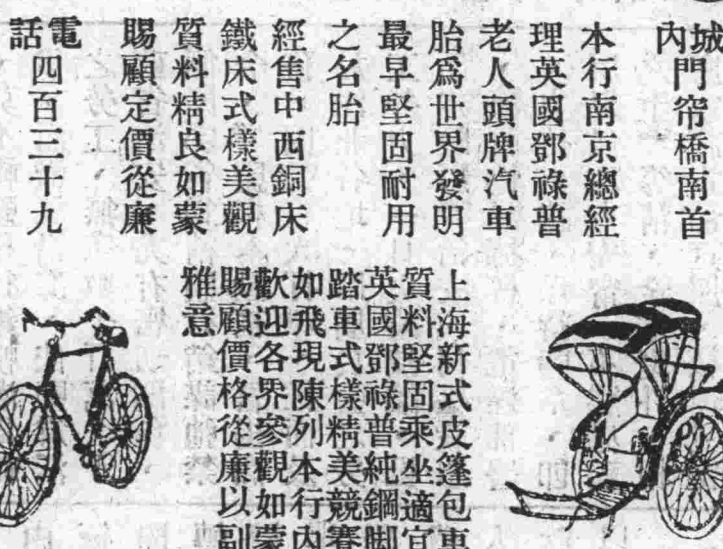 城
內門帘橋南首
本行南京總經
理英國鄧祿普
老人頭牌汽車
胎爲世界發明
最早堅固耐用
之名胎
經售中西銅床
鐵床式樣美觀
質料精良如蒙
賜顧定價從廉
電話四百三十九
上海新式皮篷包車
質料堅固乘坐適宜
英國鄧祿普純鋼脚
踏車式樣精美競賽
如飛現陳列本行內
歡迎各界參觀如蒙
賜顧價格從廉以副
雅意